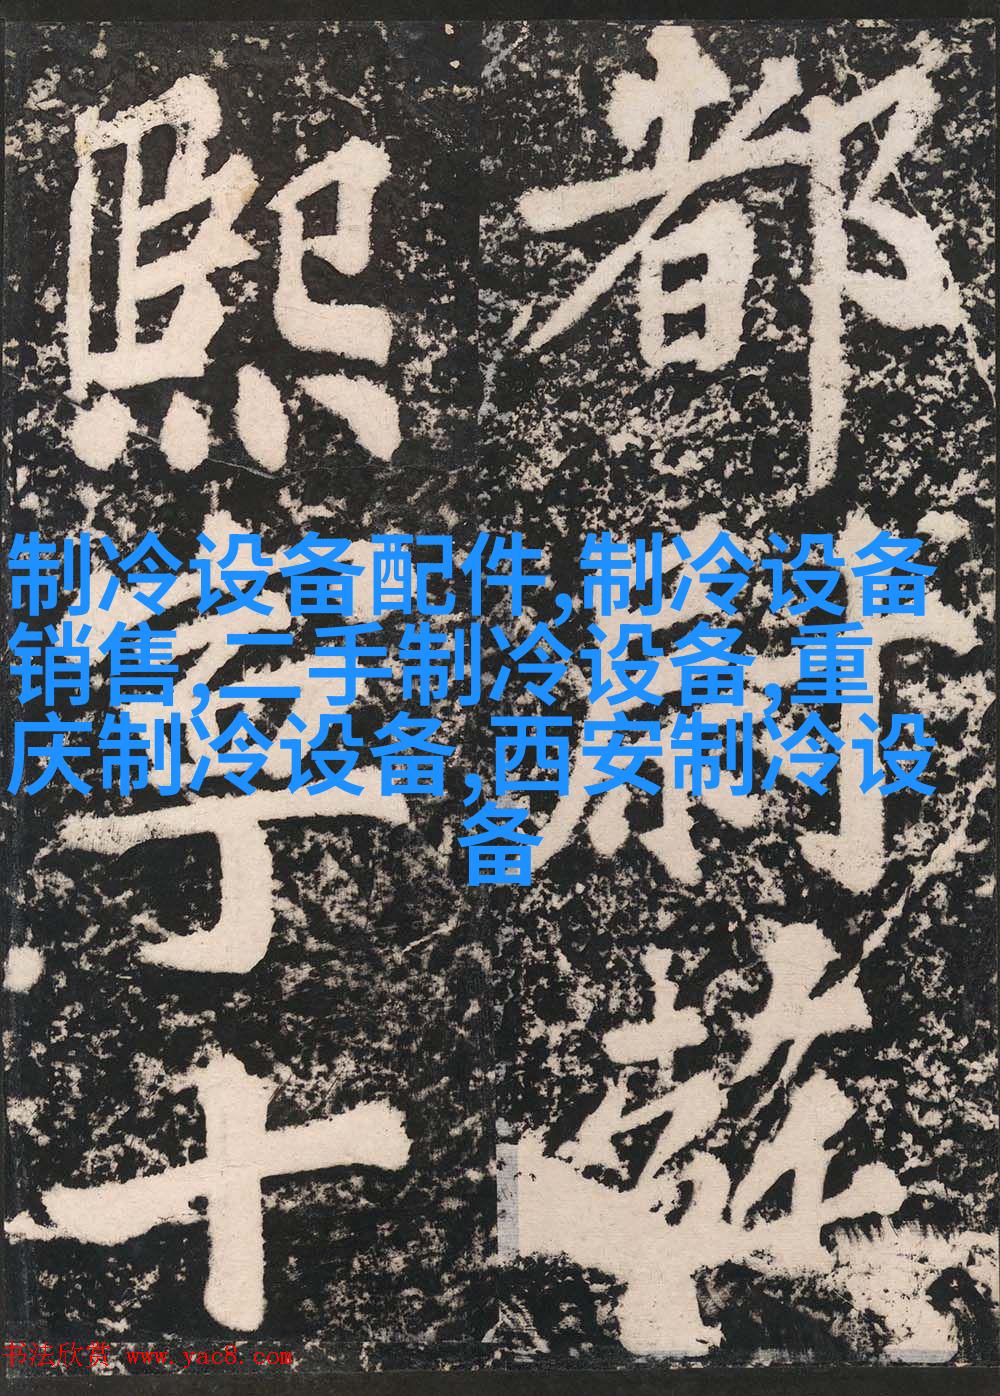 都
熙寧十
制冷设备配件,制冷设备
销售,二手制冷设备,重
庆制冷设备,西安制冷设
备
书法欣赏 www.yac8.com